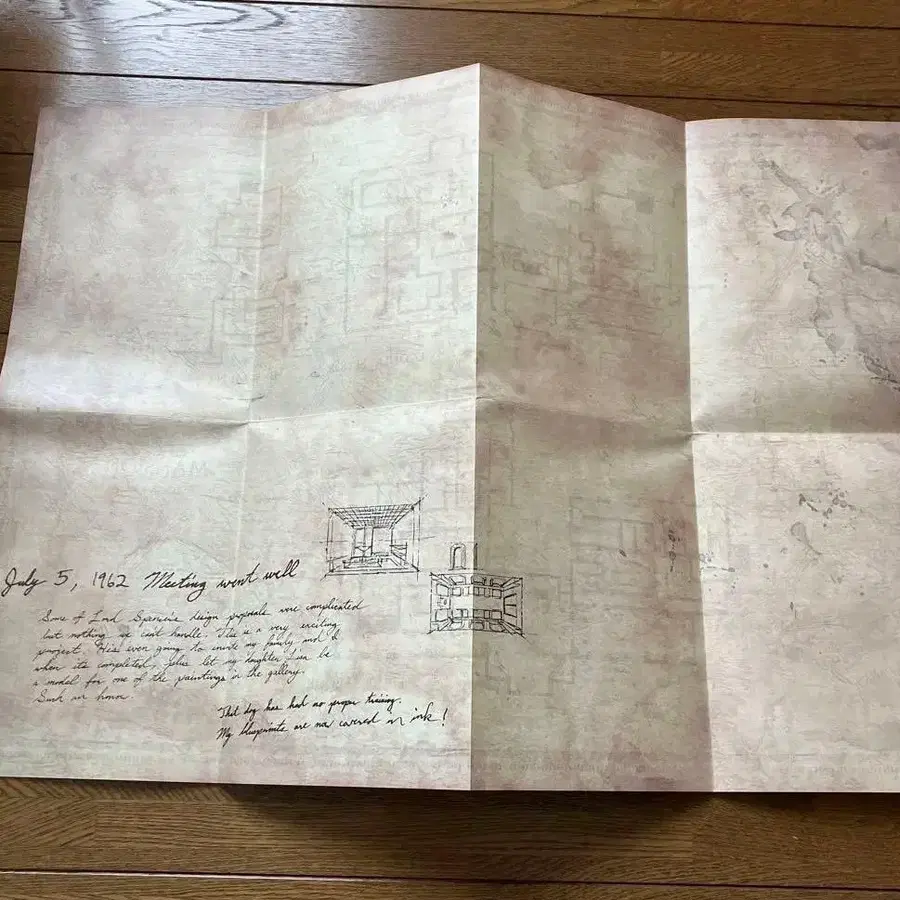 July 5, 1962 Meeting went well
Some of Lord Spencer's design proposals were complicated
but nothing we can't handle. This is a very exciting
project. He's even going to invite my family and I
when its completed, plus let my daughter Lisa be
a model for one of the paintings in the gallery.
Such an honor.
That dog has had no proper training.
My blueprints are now covered in ink!